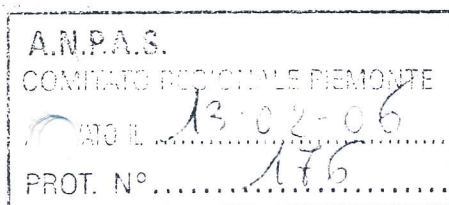 A.N.P.A.S.
COMITATO REGIONALE PIEMONTE
ATO IL 13-02-06
PROT. N° 176